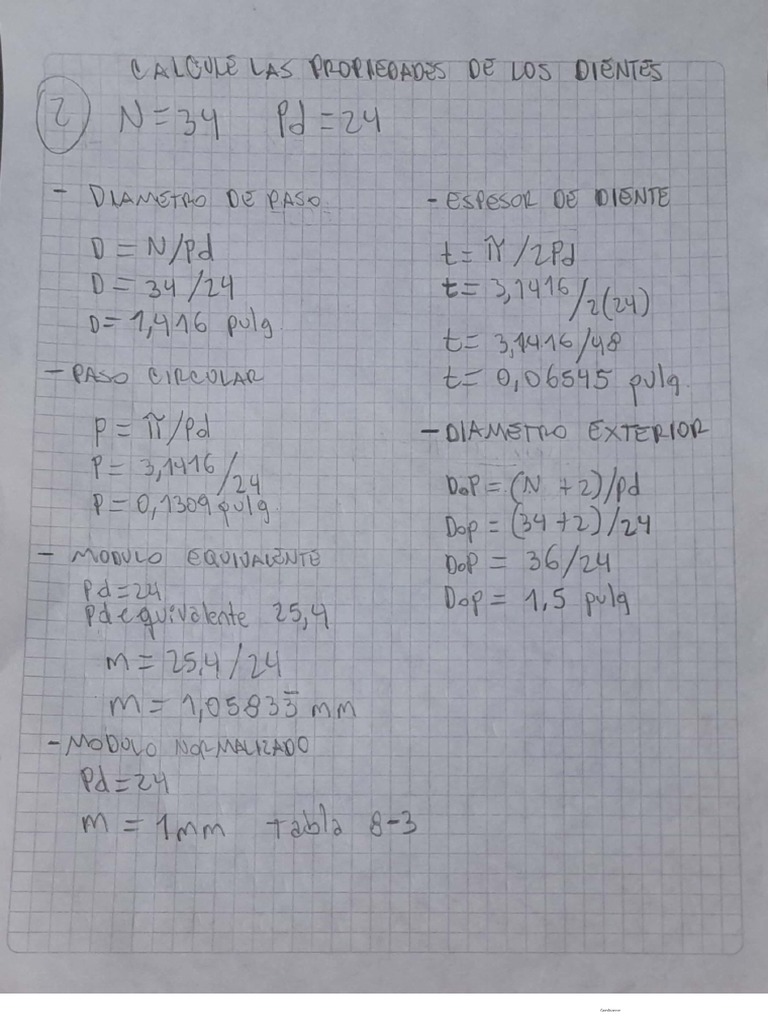 CALCULE LAS PROPIEDADES DE LOS DIENTES
2 N=34 Pd=24
- DIAMETRO DE PASO
D = N/Pd
D = 34/24
D= 1,416 pulg.
- PASO CIRCULAR
P = π/Pd
P = 3,1416/24
P = 0,1309 pulg.
- MODULO EQUIVALENTE
Pd=24
Pd equivalente 25,4
m = 25,4/24
m = 1,05833̅ mm
- MODULO NORMALIZADO
Pd=24
m = 1mm tabla 8-3
- ESPESOR DE DIENTE
t= π/2Pd
t= 3,1416/2(24)
t= 3,1416/48
t= 0,06545 pulg.
- DIAMETRO EXTERIOR
DoP = (N +2)/pd
Dop = (34+2)/24
DoP = 36/24
Dop = 1,5 pulg